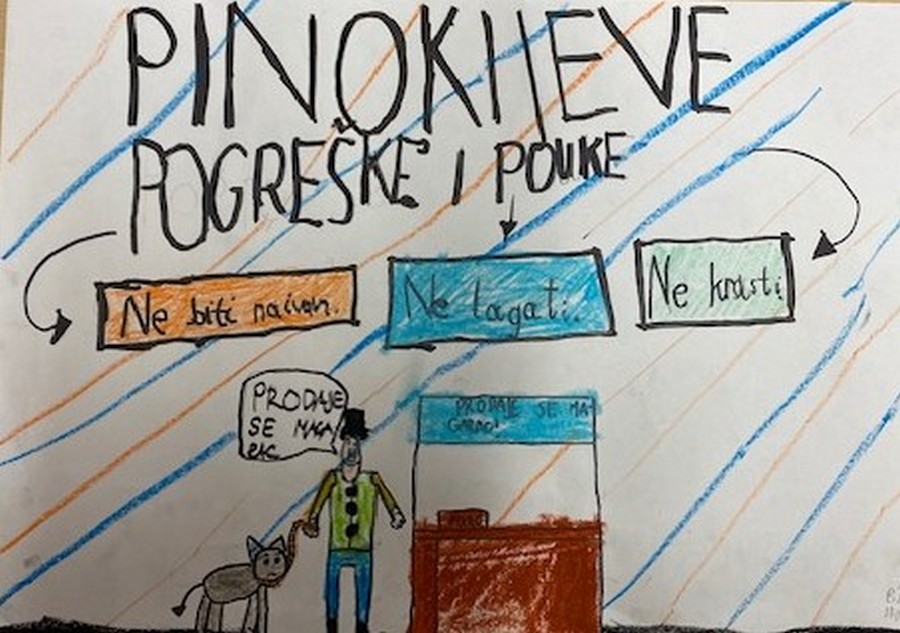 PINOKIJEVE
POGREŠKE I POUKE
Ne biti naivan.
Ne lagati.
Ne krasti
PRODAJE
SE MAGA
RAC
PRODAJE SE MA-
GARAC!